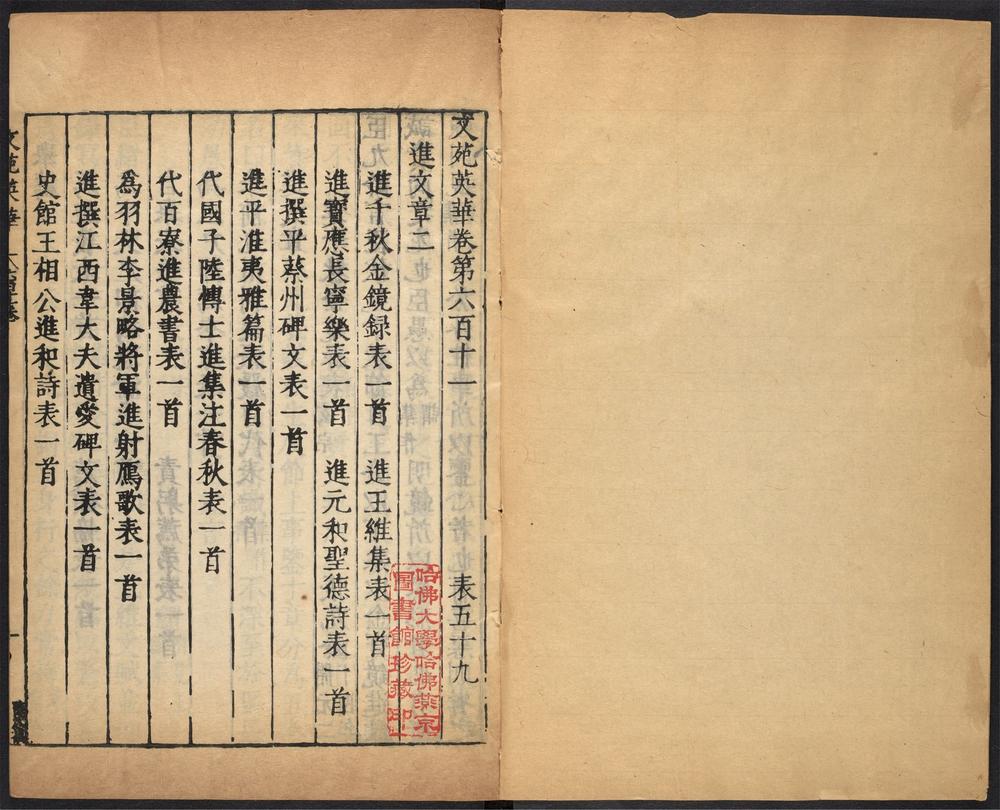 文苑英華卷第六百十一　表五十九
進文章二
進千秋金鏡録表一首　進王維集表一首
進寶應長寧樂表一首　進元和聖德詩表一首
進撰平蔡州碑文表一首
進平淮夷雅篇表一首
代國子陸博士進集注春秋表一首
代百寮進農書表一首
為羽林李景略將軍進射鴈歌表一首
進撰江西韋大夫遺愛碑文表一首
史館王相公進和詩表一首
文苑英華
哈佛大學哈佛燕京
圖書館珍藏印